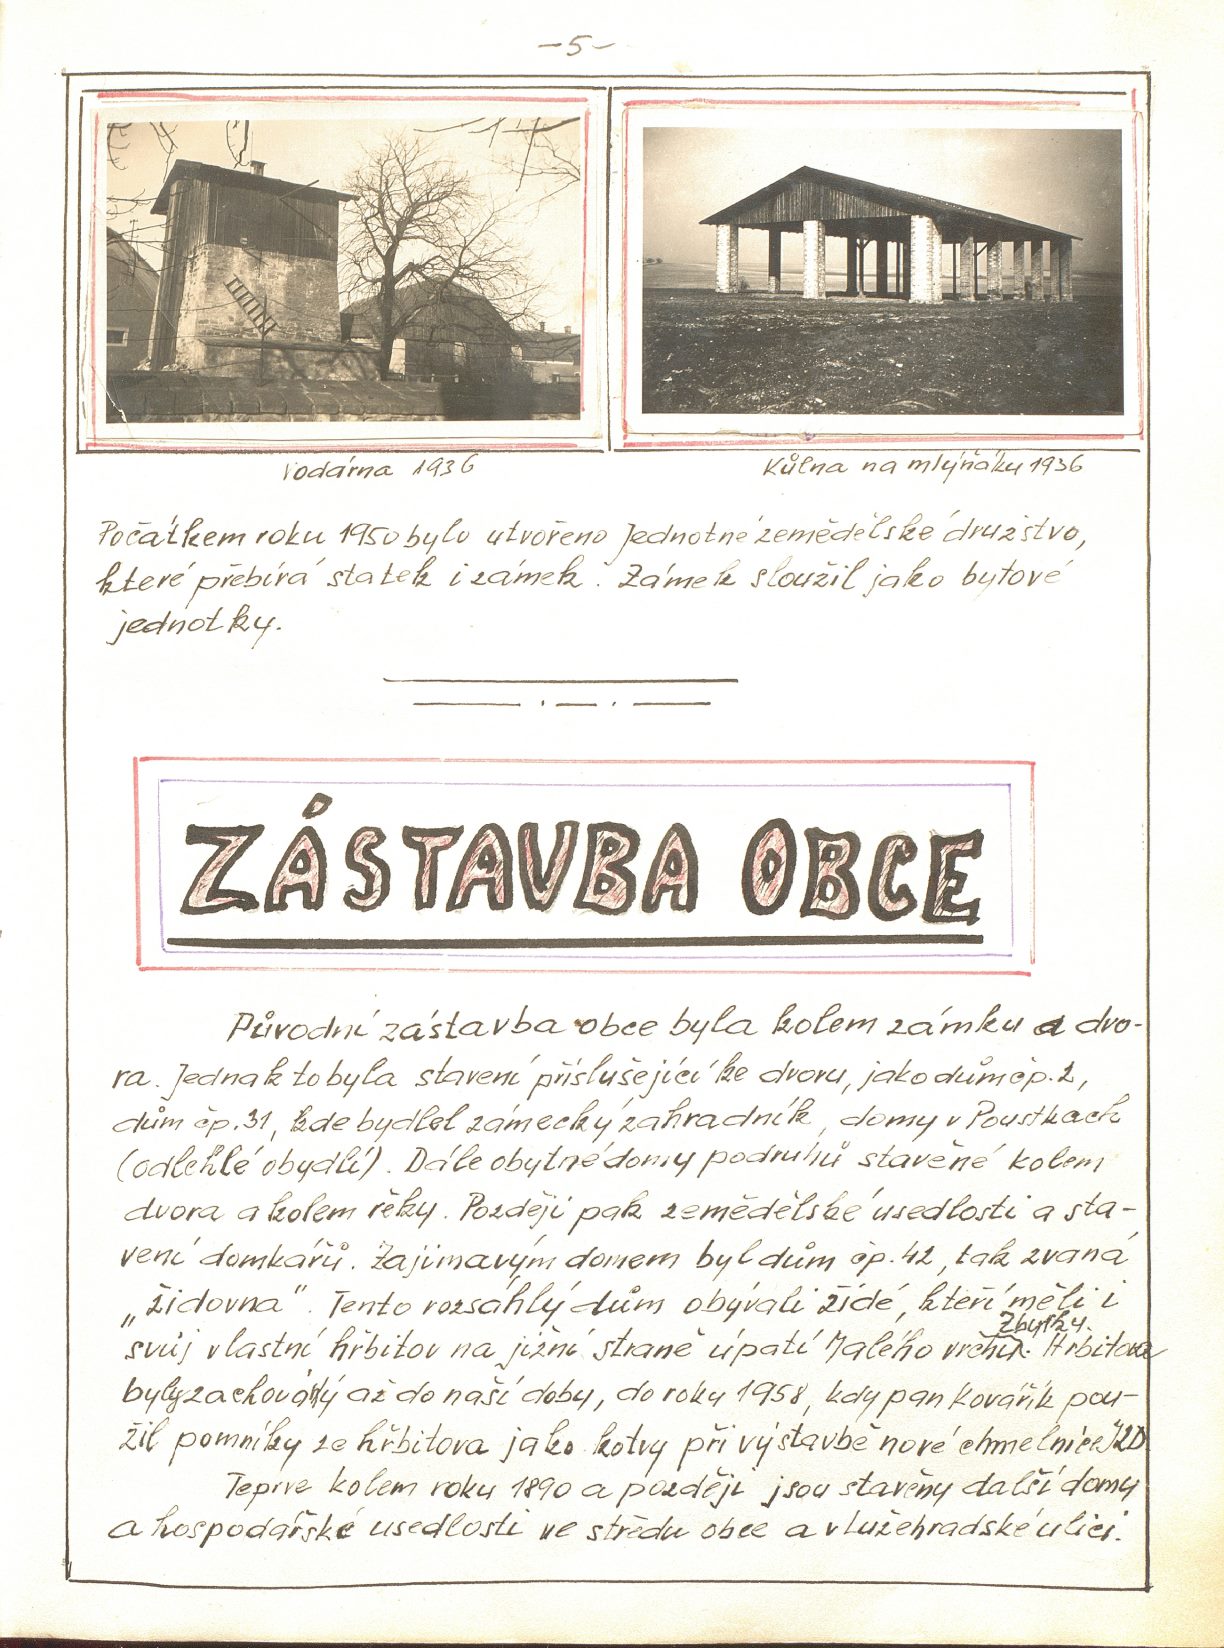 -5-
Vodárna 1936
Kůlna na mlýňáku 1936
Počátkem roku 1950 bylo utvořeno Jednotné zemědělské družstvo,
které přebírá statek i zámek. Zámek sloužil jako bytové
jednotky.
ZÁSTAVBA OBCE
Původní zástavba obce byla kolem zámku a dvo-
ra. Jednak to byla stavení příslušející ke dvoru, jako dům čp. 2,
dům čp. 31, kde bydlel zámecký zahradník, domy v Poustkach
(odlehlé obydlí). Dále obytné domy podruhů stavěné kolem
dvora a kolem řeky. Později pak zemědělské usedlosti a sta-
vení domkářů. Zajímavým domem byl dům čp. 42, tak zvaná
„židovna". Tento rozsáhlý dům obývali židé, kteří měli i
Zbytky
svůj vlastní hřbitov na jižní straně úpatí Malého vrchu. Hřbitova
byly zachovány až do naší doby, do roku 1958, kdy pan Kovářík pou-
žil pomníky ze hřbitova jako kotvy při výstavbě nové chmelnice JZD
Teprve kolem roku 1890 a později jsou stavěny další domy
a hospodářské usedlosti ve středu obce a v Lužehradské ulici.